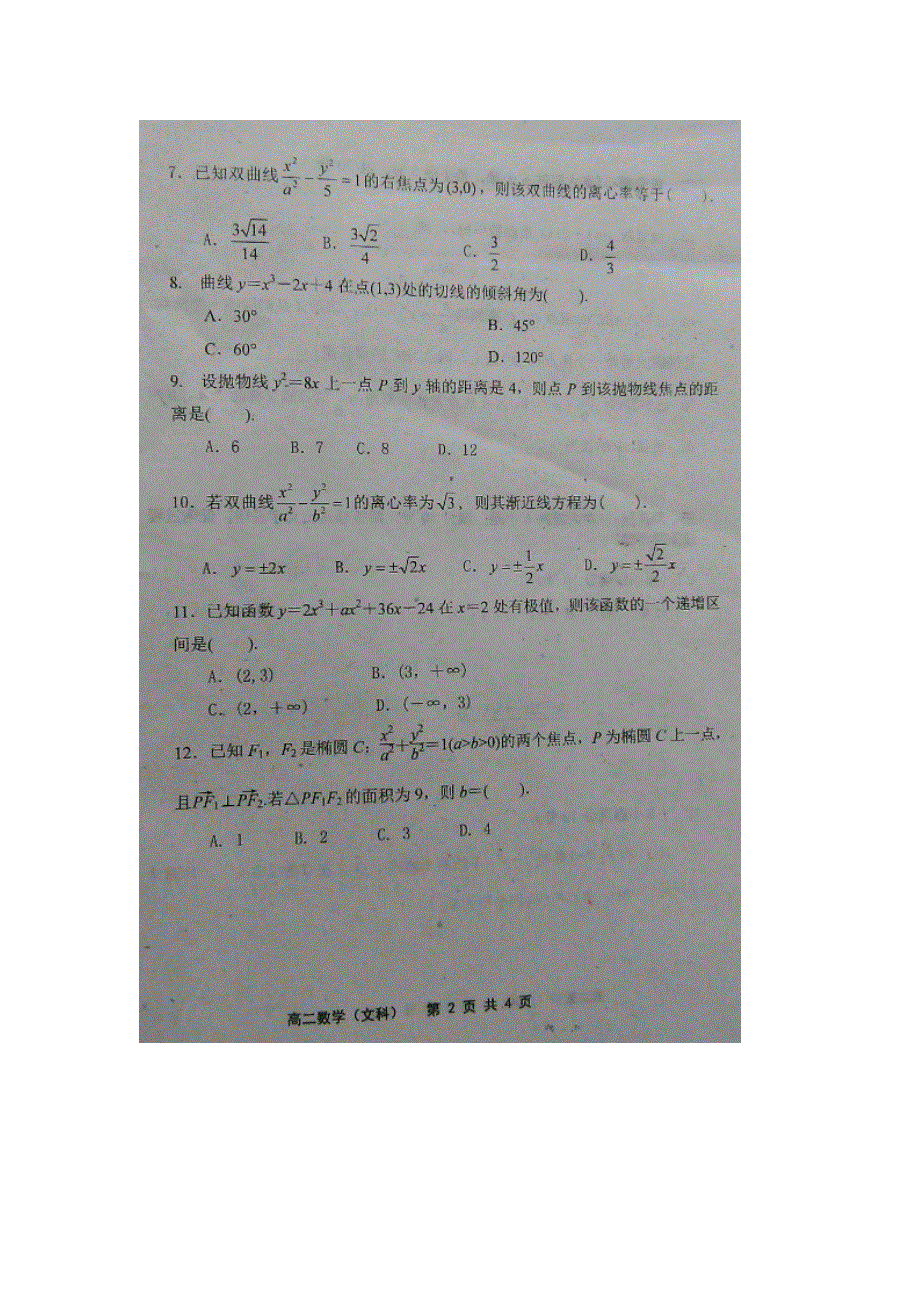 7．已知双曲线 x²/a² − y²/5 =1的右焦点为(3,0)，则该双曲线的离心率等于(　　).
A．3√14/14　B．3√2/4　C．3/2　D．4/3
8．曲线 y=x³−2x+4 在点(1,3)处的切线的倾斜角为(　　).
A．30°　B．45°
C．60°　D．120°
9．设抛物线 y²=8x 上一点 P 到 y 轴的距离是 4，则点 P 到该抛物线焦点的距
离是(　　).
A．6　B．7　C．8　D．12
10．若双曲线 x²/a² − y²/b² =1的离心率为√3，则其渐近线方程为(　　).
A．y=±2x　B．y=±√2x　C．y=±1/2 x　D．y=±√2/2 x
11．已知函数 y=2x³+ax²+36x−24 在 x=2 处有极值，则该函数的一个递增区
间是(　　).
A．(2,3)　B．(3，+∞)
C．(2，+∞)　D．(−∞，3)
12．已知 F₁，F₂是椭圆 C：x²/a²+y²/b²=1(a>b>0)的两个焦点，P 为椭圆 C 上一点，
且PF₁⊥PF₂.若△PF₁F₂的面积为 9，则 b=(　　).
A．1　B．2　C．3　D．4
高二数学（文科）　第 2 页 共 4 页